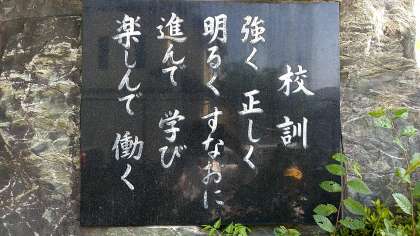 校訓
強く 正しく
明るく すなおに
進んで 学び
楽しんで 働く